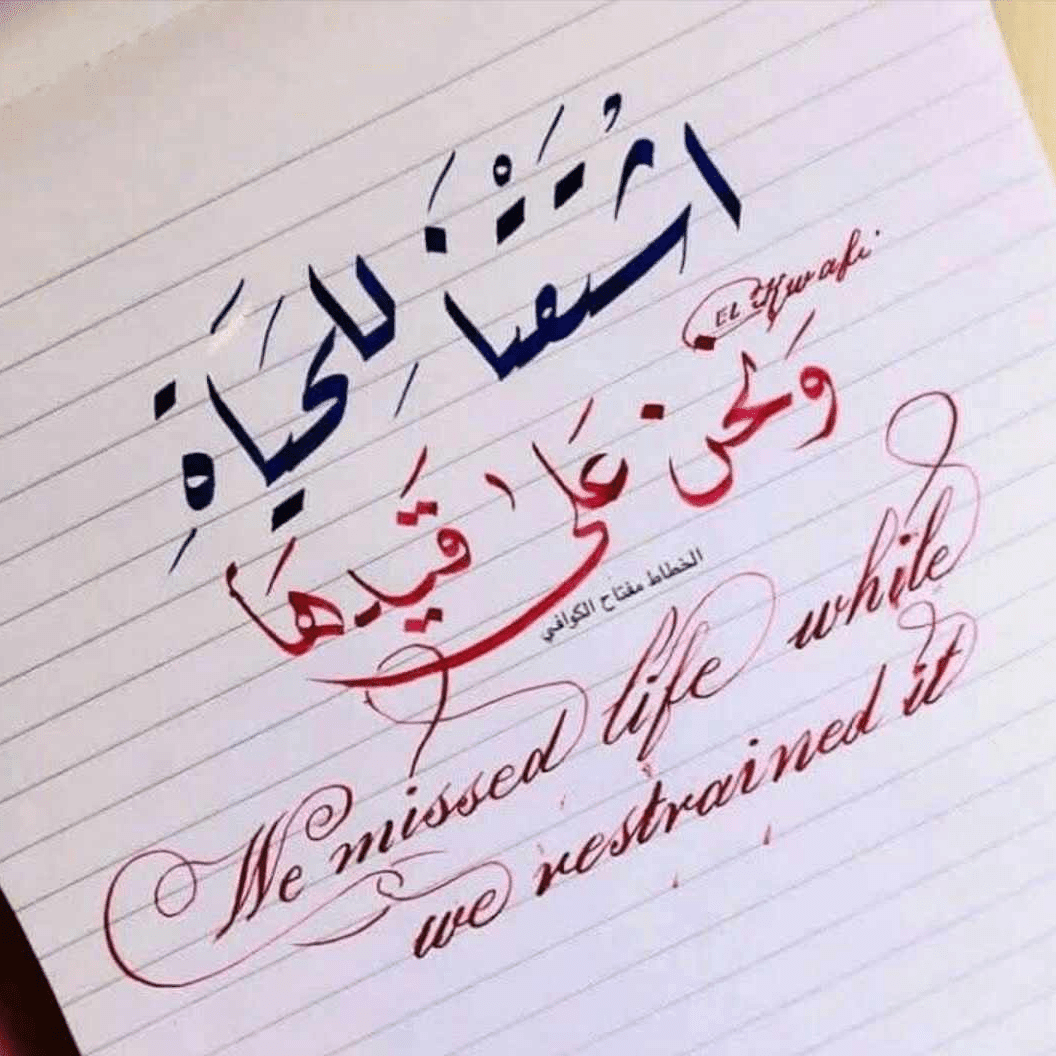 اشتقنَا لِلحَيَاةِ
EL Kwafi
وَنحن عَلى قَيدهَا
الخطاط مفتاح الكوافي
We missed life while
we restrained it